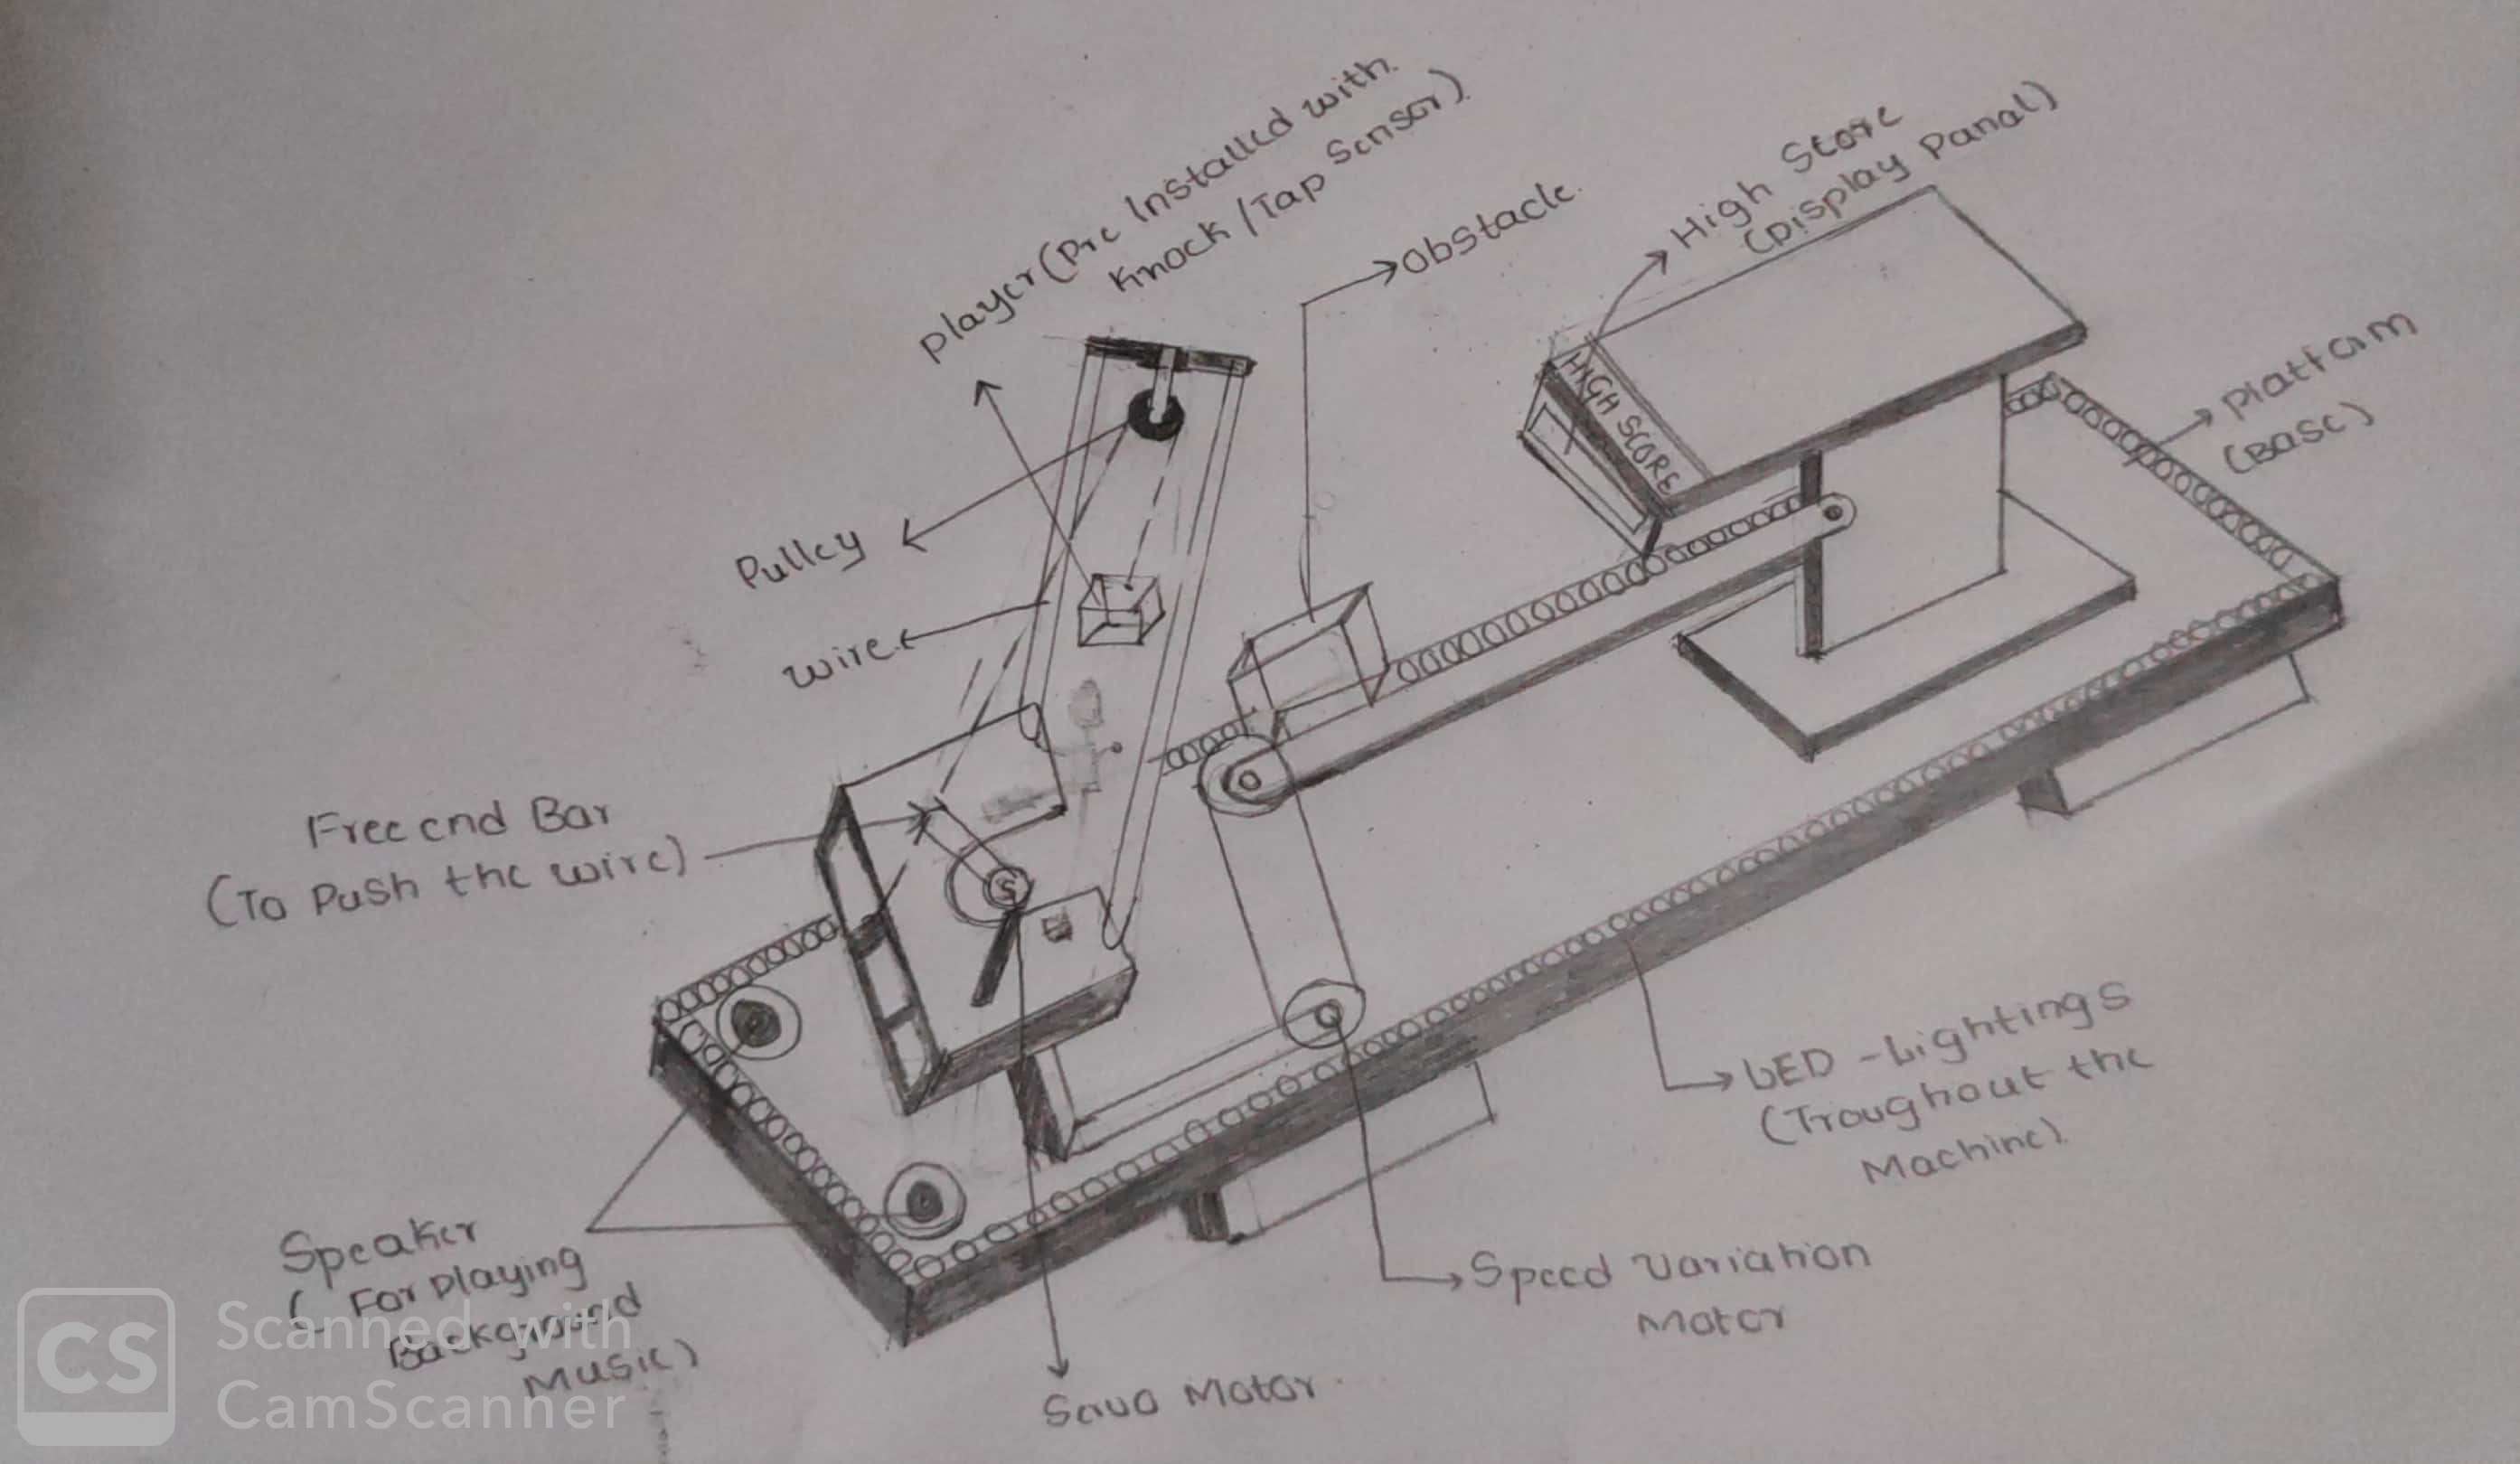 Player (Pre Installed with
Knock/Tap Sensor).
Obstacle.
High Score
(Display Panal)
HIGH SCORE
Platform
(Base)
Pulley
wire
Free end Bar
(To Push the wire)
LED - Lightings
(Troughout the
Machine).
Speed Variation
Motor
Servo Motor.
Speaker
( For playing
Background
Music)
CS
Scanned with
CamScanner